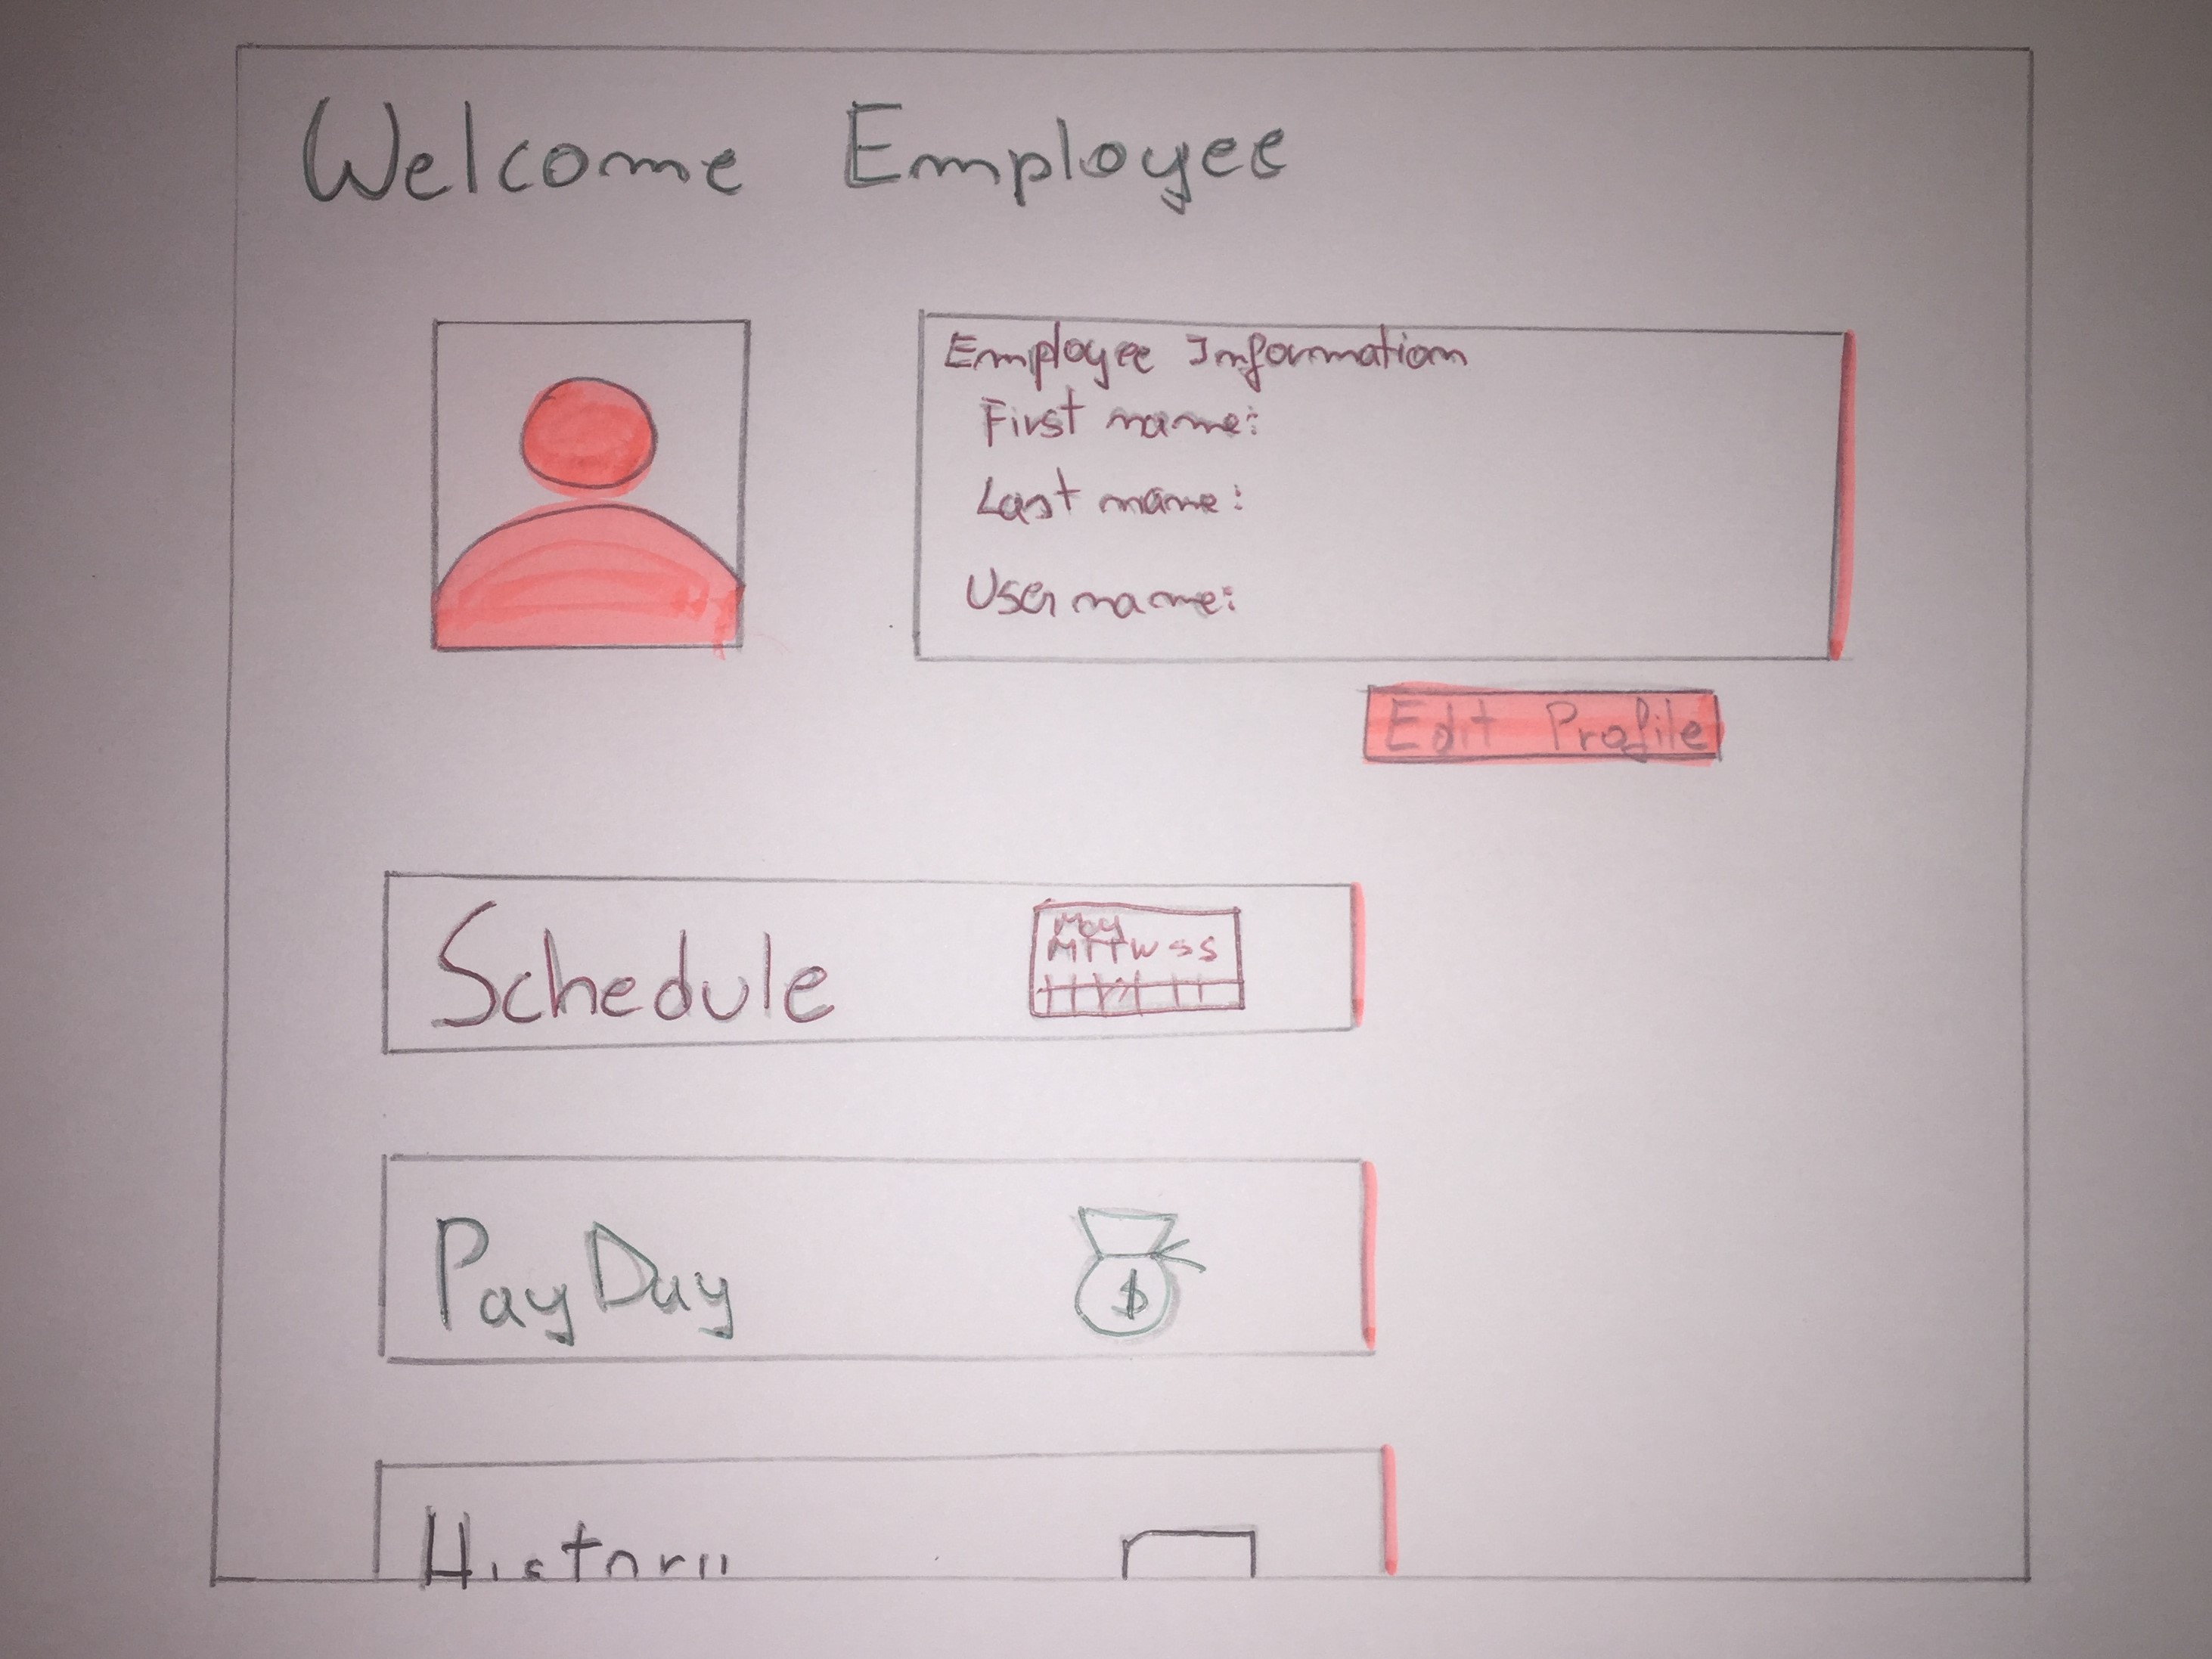 Welcome Employee
Employee Information
First name:
Last name:
Username:
Edit Profile
Schedule
May
MTTWSS
PayDay
$
History